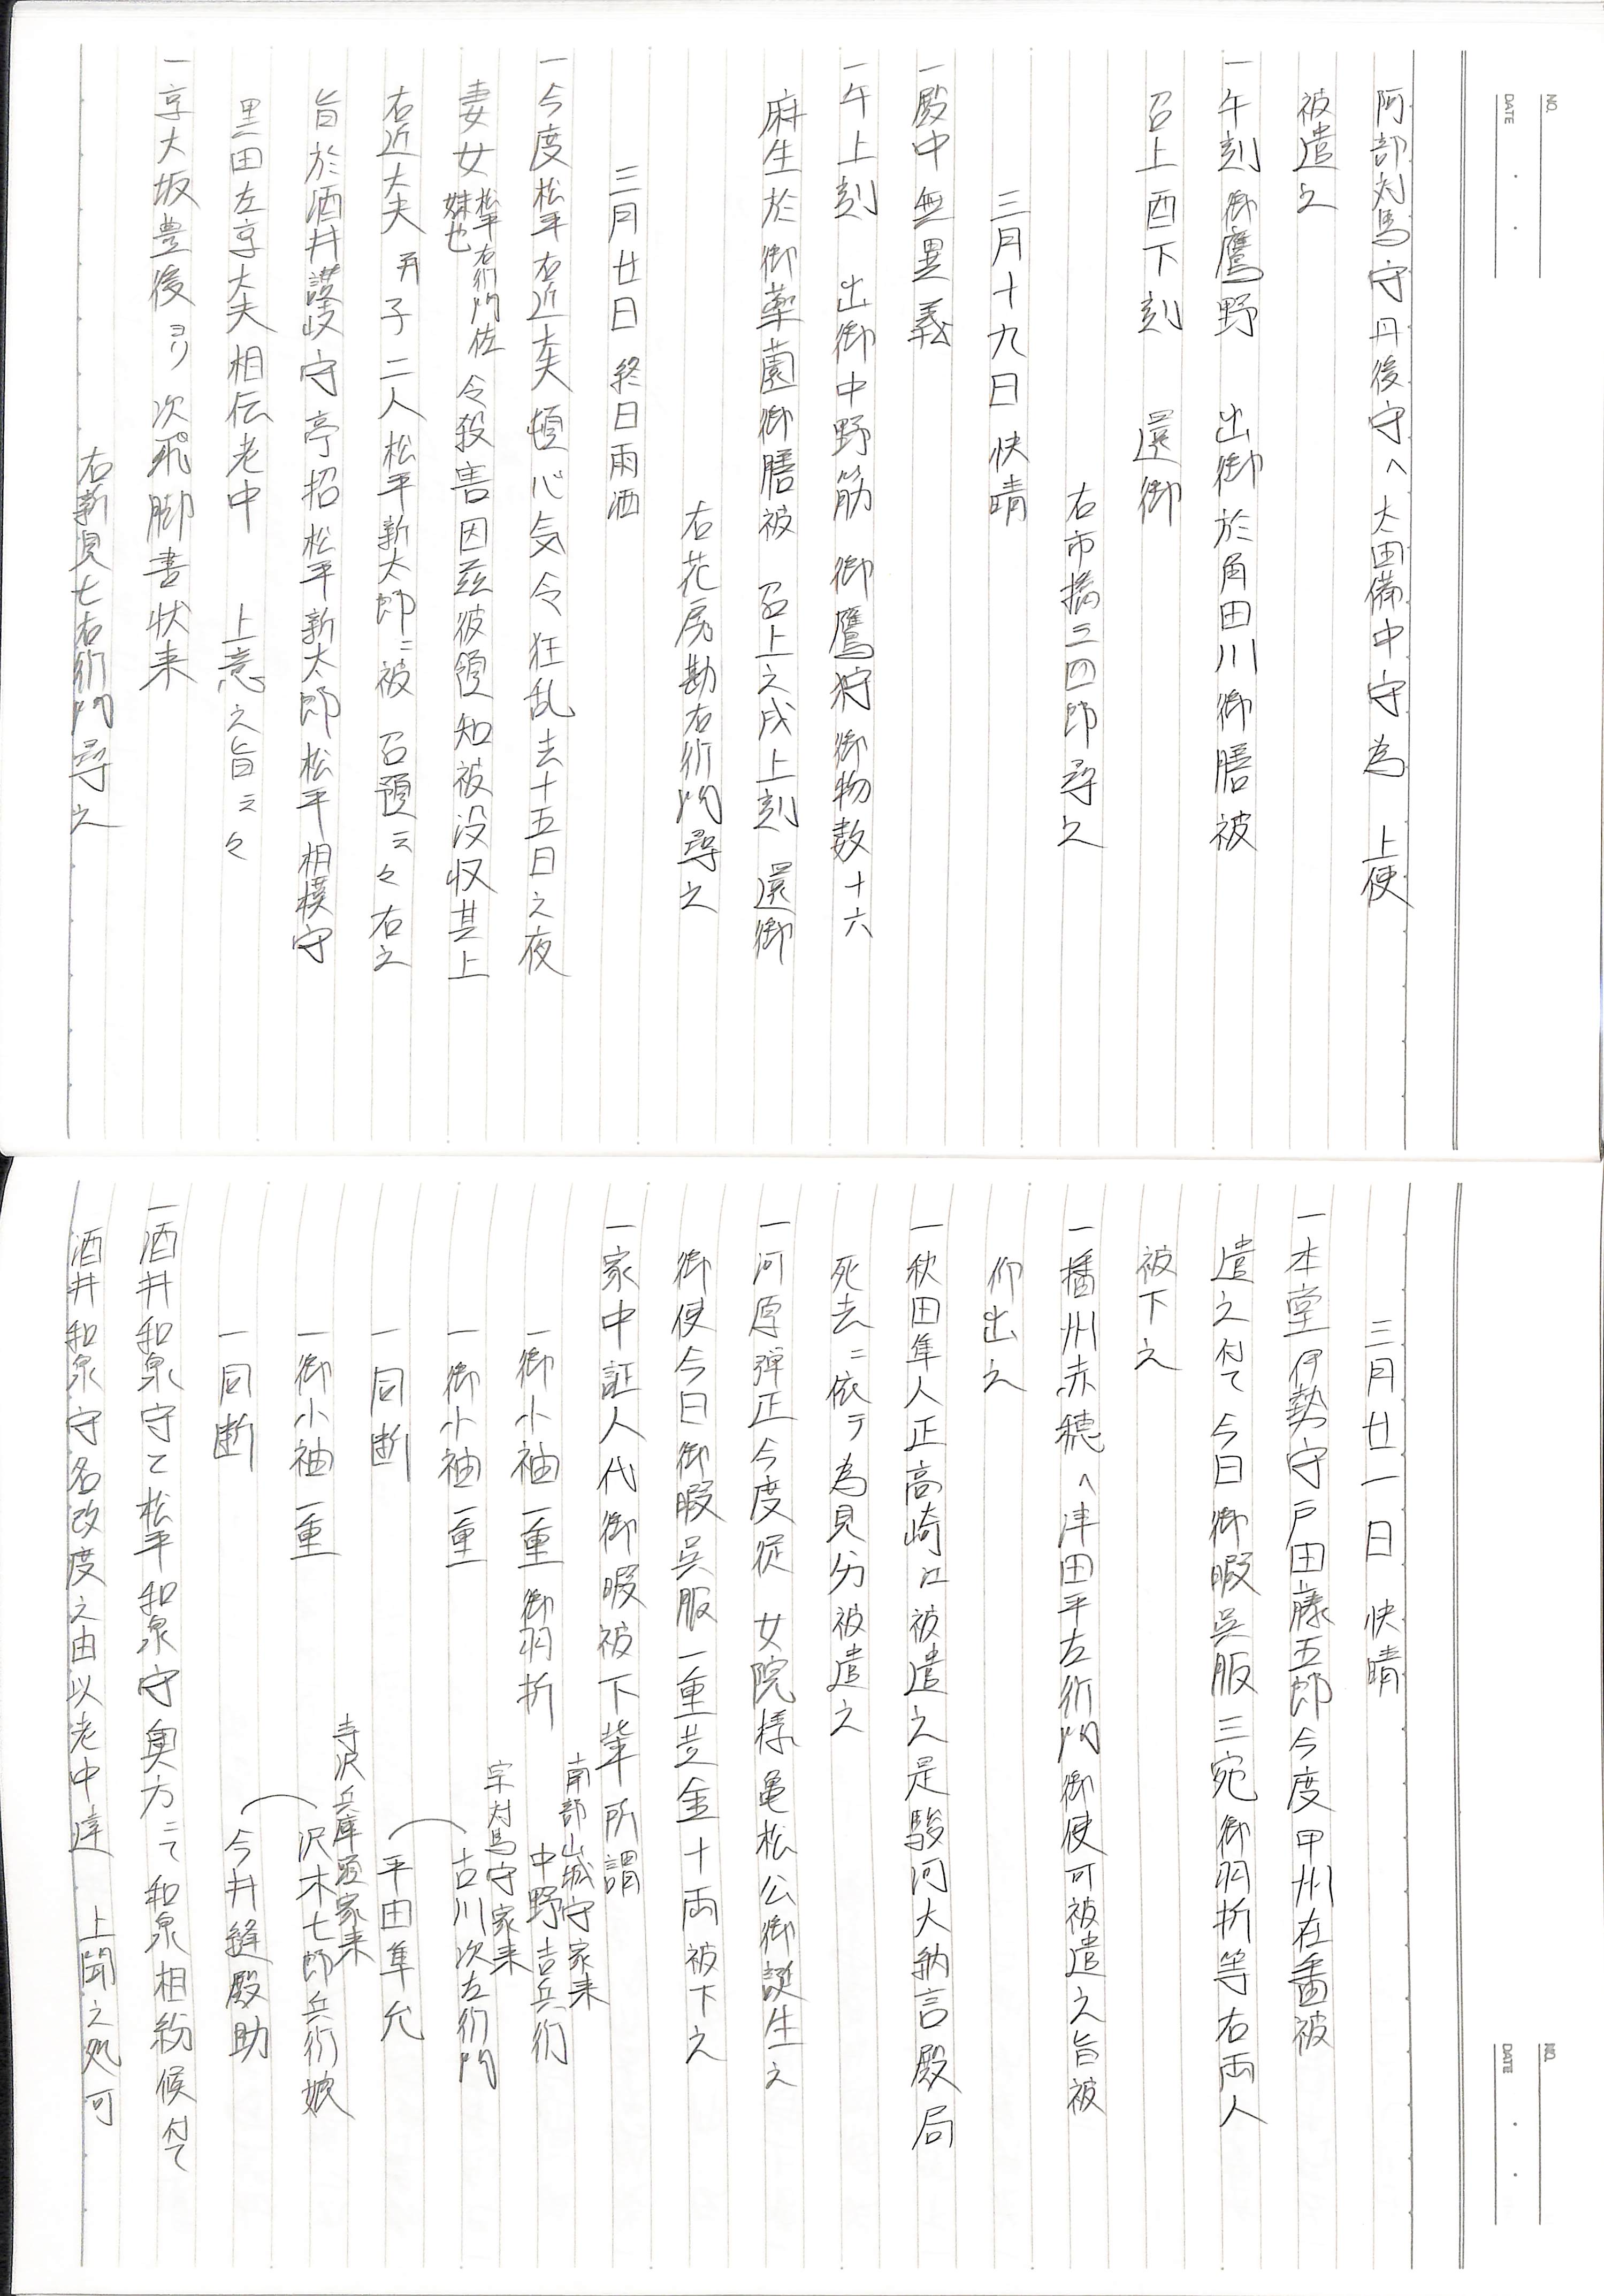 NO.
DATE
阿部対馬守丹後守へ太田備中守為　上使
被遣之
一午刻御鷹野　出御於角田川御膳被
召上酉下刻　還御
右市橋三四郎尋之
三月十九日　快晴
一殿中無異義
一午上刻　出御中野筋　御鷹狩御物数十六
麻生於御薬園御膳被　召上之戌上刻　還御
右花房勘右衛門尋之
三月廿日　終日雨洒
一今度松平右近大夫頓心気令狂乱去十五日之夜
妻女松平右衛門佐妹也令殺害因茲彼領知被没収其上
右近大夫并子二人松平新太郎ニ被　召預云々右之
旨於酒井讃岐守亭招松平新太郎松平相模守
黒田左京大夫相伝老中　上意之旨云々
一京大坂豊後ヨリ次飛脚書状来
右新見七右衛門尋之
NO.
DATE
三月廿一日　快晴
一本堂伊勢守戸田藤五郎今度甲州在番被
遣之付て今日御暇呉服三宛御羽折等右両人
被下之
一播州赤穂へ津田平左衛門御使可被遣之旨被
仰出之
一秋田隼人正高崎江被遣之是駿河大納言殿局
死去ニ依テ為見分被遣之
一河原弾正今度従　女院様亀松公御誕生之
御使今日御暇呉服一重并金十両被下之
一家中証人代御暇被下輩所謂
南部山城守家来
一御小袖一重御羽折　中野吉兵衛
宗対馬守家来
一御小袖一重　古川次左衛門
一同断　平田隼允
寺沢兵庫頭家来
一御小袖一重　沢木七郎兵衛娘
一同断　今井縫殿助
一酒井和泉守て松平和泉守奥方ニて和泉相紛候付て
酒井和泉守名改度之由以老中達　上聞之処可